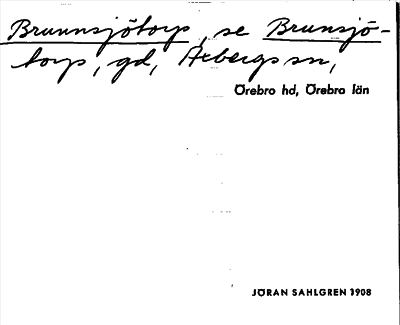 Brunnsjötorp, se Brunsjö-
torp, gd, Axbergs sn,
Örebro hd, Örebro län
JÖRAN SAHLGREN 1908